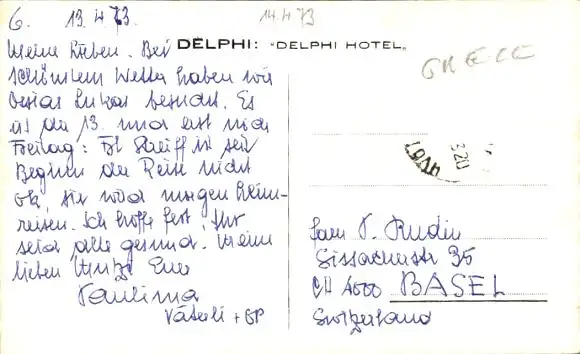 6. 13.4.73 14.4.73
Meine Lieben. Bei
DELPHI: "DELPHI HOTEL"
schönstem Wetter haben wir
Osios Lukas besucht. Es
ist der 13. und erst noch
Freitag: Frl. Streiff ist seit
Beginn der Reise nicht
ok, sie wird morgen heim-
reisen. Ich hoffe fest, Ihr
seid alle gesund. Meine
lieben Eure
Paulina
Väterli + GP
GRECE
Fam. P. Rudin
Sissacherstr 35
CH 4000 BASEL
Switzerland